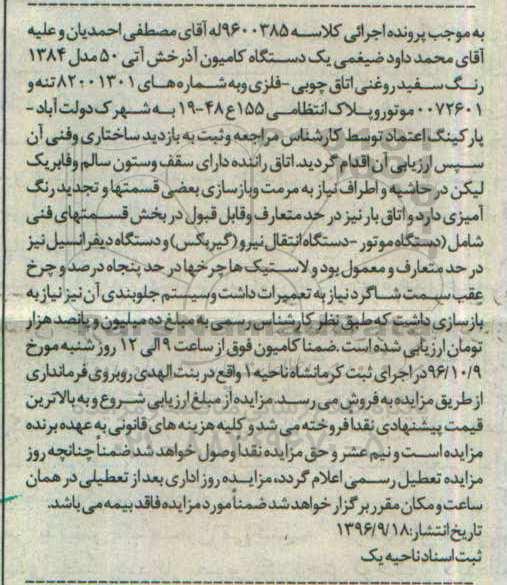 به موجب پرونده اجرائی کلاسه ۹۶۰۰۳۸۵له آقای مصطفی احمدیان و علیه
آقای محمد داود ضیغمی یک دستگاه کامیون آذرخش آتی ۵۰ مدل ۱۳۸۴
رنگ سفید روغنی اتاق چوبی -فلزی وبه شماره های ۸۲۰۰۱۳۰۱ تنه و
۰۰۷۲۶۰۱ موتور وپلاک انتظامی ۱۵۵ع۴۸-۱۹ به شهرک دولت آباد -
پارکینگ اعتماد توسط کارشناس مراجعه وثبت به بازدید ساختاری وفنی آن
سپس ارزیابی آن اقدام گردید. اتاق راننده دارای سقف وستون سالم وفابریک
لیکن در حاشیه و اطراف نیاز به مرمت وبازسازی بعضی قسمتها و تجدید رنگ
آمیزی دارد و اتاق بار نیز در حد متعارف وقابل قبول در بخش قسمتهای فنی
شامل (دستگاه موتور -دستگاه انتقال نیرو (گیربکس) و دستگاه دیفرانسیل نیز
در حد متعارف و معمول بود و لاستیک ها چرخها در حد پنجاه درصد و چرخ
عقب سمت شاگرد نیاز به تعمیرات داشت وسیستم جلوبندی آن نیز نیاز به
بازسازی داشت که طبق نظر کارشناس رسمی به مبلغ ده میلیون و پانصد هزار
تومان ارزیابی شده است .ضمنا کامیون فوق از ساعت ۹ الی ۱۲ روز شنبه مورخ
۹۶/۱۰/۹در اجرای ثبت کرمانشاه ناحیه ۱ واقع در بنت الهدی روبروی فرمانداری
از طریق مزایده به فروش می رسد. مزایده از مبلغ ارزیابی شروع و به بالاترین
قیمت پیشنهادی نقدا فروخته می شد و کلیه هزینه های قانونی به عهده برنده
مزایده است و نیم عشر و حق مزایده نقدا وصول خواهد شد ضمناً چنانچه روز
مزایده تعطیل رسمی اعلام گردد، مزایده روز اداری بعد از تعطیلی در همان
ساعت و مکان مقرر برگزار خواهد شد ضمناً مورد مزایده فاقد بیمه می باشد.
تاریخ انتشار:۱۳۹۶/۹/۱۸
ثبت اسناد ناحیه یک